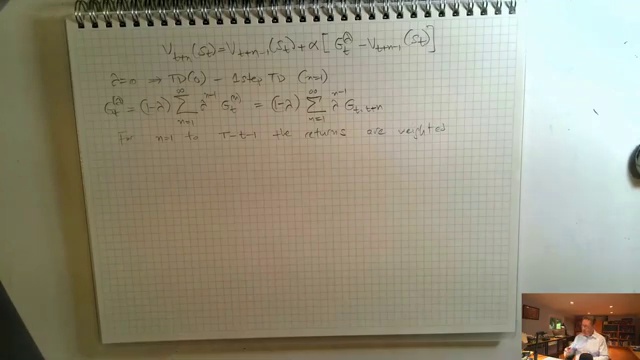 V_{t+n}(S_t) = V_{t+n-1}(S_t) + α[G_t^λ - V_{t+n-1}(S_t)]
λ=n ⇒ TD(0) - 1 step TD (n=1)
G_t^{(λ)} = (1-λ) ∑_{n=1}^∞ λ^{n-1} G_t^{(n)} = (1-λ) ∑_{n=1}^∞ λ^{n-1} G_{t,t+n}
For n=1 to T-t-1 the returns are weighted